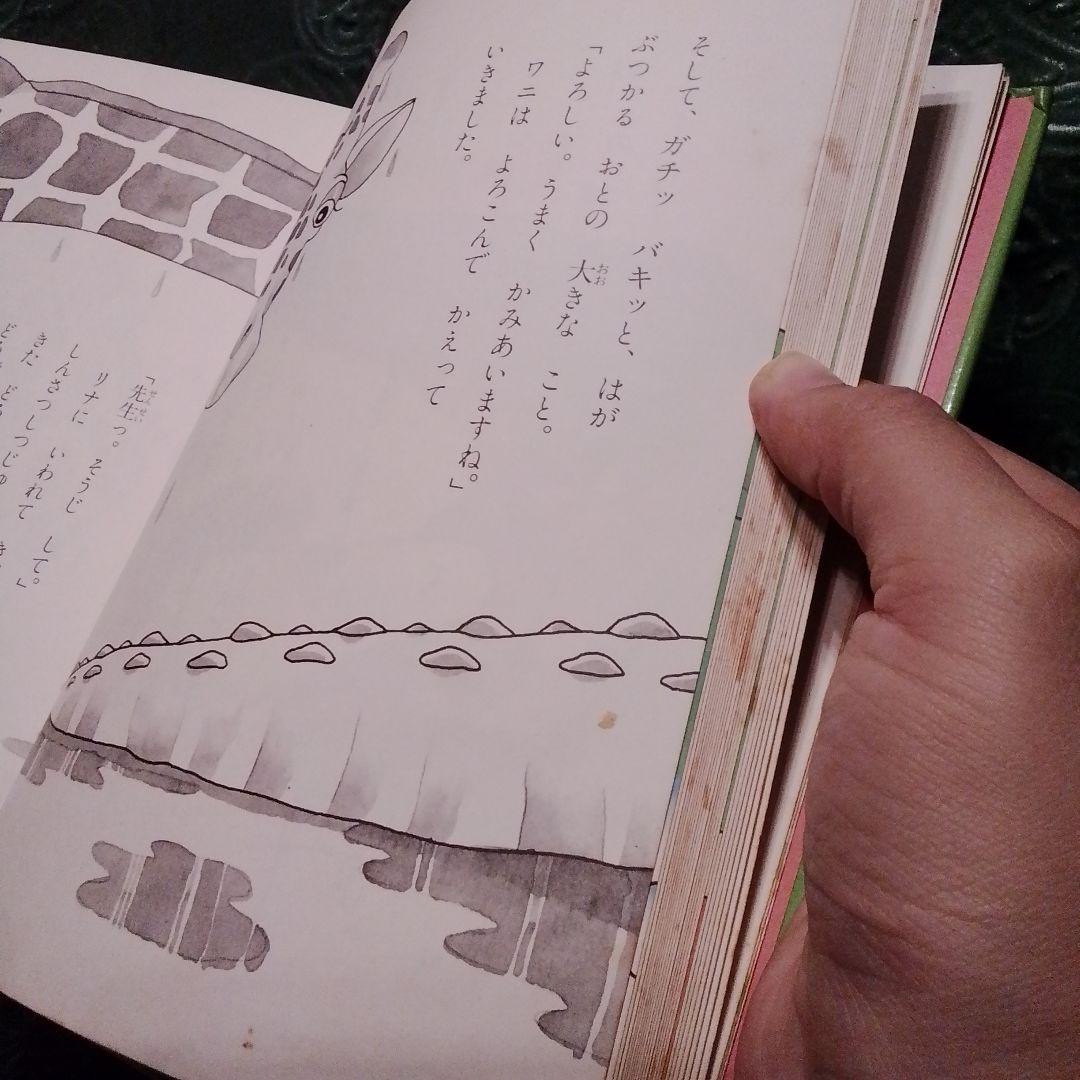 そして、 ガチッ バキッと、 はが
ぶつかる おとの 大きな こと。
「よろしい。 うまく かみあいますね。」
ワニは よろこんで かえって
いきました。
「先生っ。 そうじ して。」
リナに いわれて
しんさつしつじゅ
きだ